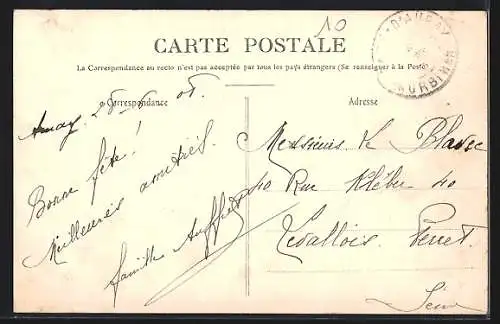 10
CARTE POSTALE
La Correspondance au recto n'est pas acceptée par tous les pays étrangers (Se renseigner à la Poste)
Correspondance
Adresse
D'AURAY
MORBIHAN
Auray 25-6 08.
Bonne fête!
Meilleures amitiés.
famille
Messieurs Le
40 Rue Kléber 40
Levallois Perret.
Seine